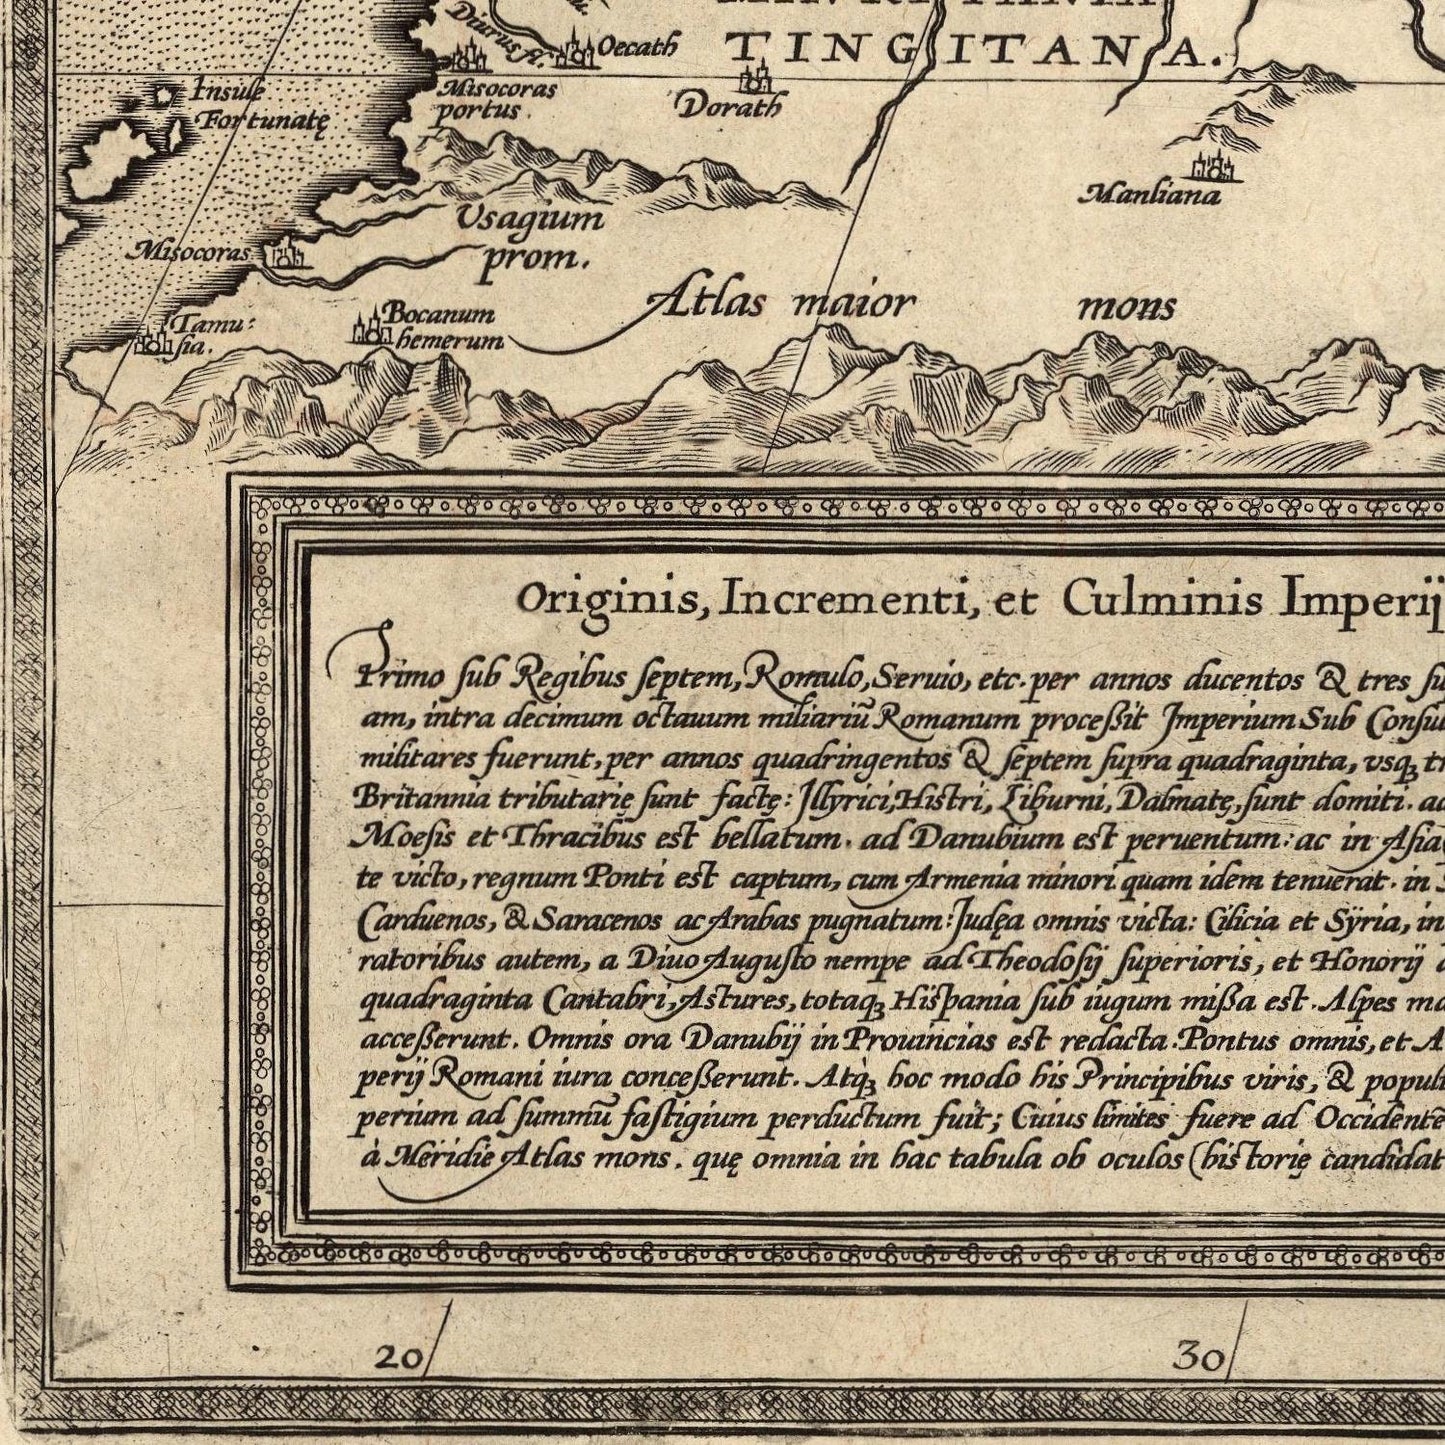 Diurus fl.
Oecath
TINGITANA.
Insule
Fortunatę
Misocoras
portus.
Dorath
Manliana
Usagium
prom.
Misocoras
Atlas maior mons
Bocanum
hemerum
Tamu:
sia.
Originis, Incrementi, et Culminis Imperij
Primo sub Regibus septem, Romulo, Seruio, etc. per annos ducentos & tres su
am, intra decimum octauum miliariũ Romanum proceßit Imperium Sub Consu
militares fuerunt, per annos quadringentos & septem supra quadraginta, vsqꝫ tr
Britannia tributarię sunt factę: Illyrici, Histri, Liburni, Dalmatę, sunt domiti. ad
Moesis et Thracibus est bellatum. ad Danubium est peruentum: ac in Asia
te victo, regnum Ponti est captum, cum Armenia minori quam idem tenuerat. in
Carduenos, & Saracenos ac Arabas pugnatum: Judęa omnis victa: Cilicia et Sÿria, in
ratoribus autem, a Diuo Augusto nempe ad Theodosij superioris, et Honorij
quadraginta Cantabri, Astures, totaqꝫ Hispania sub iugum mißa est. Alpes ma
acceßerunt. Omnis ora Danubij in Prouincias est redacta. Pontus omnis, et A
perij Romani iura conceßerunt. Atqꝫ hoc modo his Principibus viris, & popul
perium ad summũ fastigium perductum fuit; Cuius limites fuere ad Occidentẽ
à Meridie Atlas mons. quę omnia in hac tabula ob oculos (historię candidat
20
30